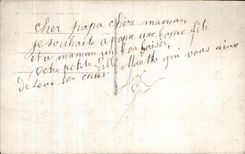 cher papa chère maman
je souhaite a papa une bonne fête
et a maman un bon baiser
Votre petite fille qui vous aime
de tous son cœur